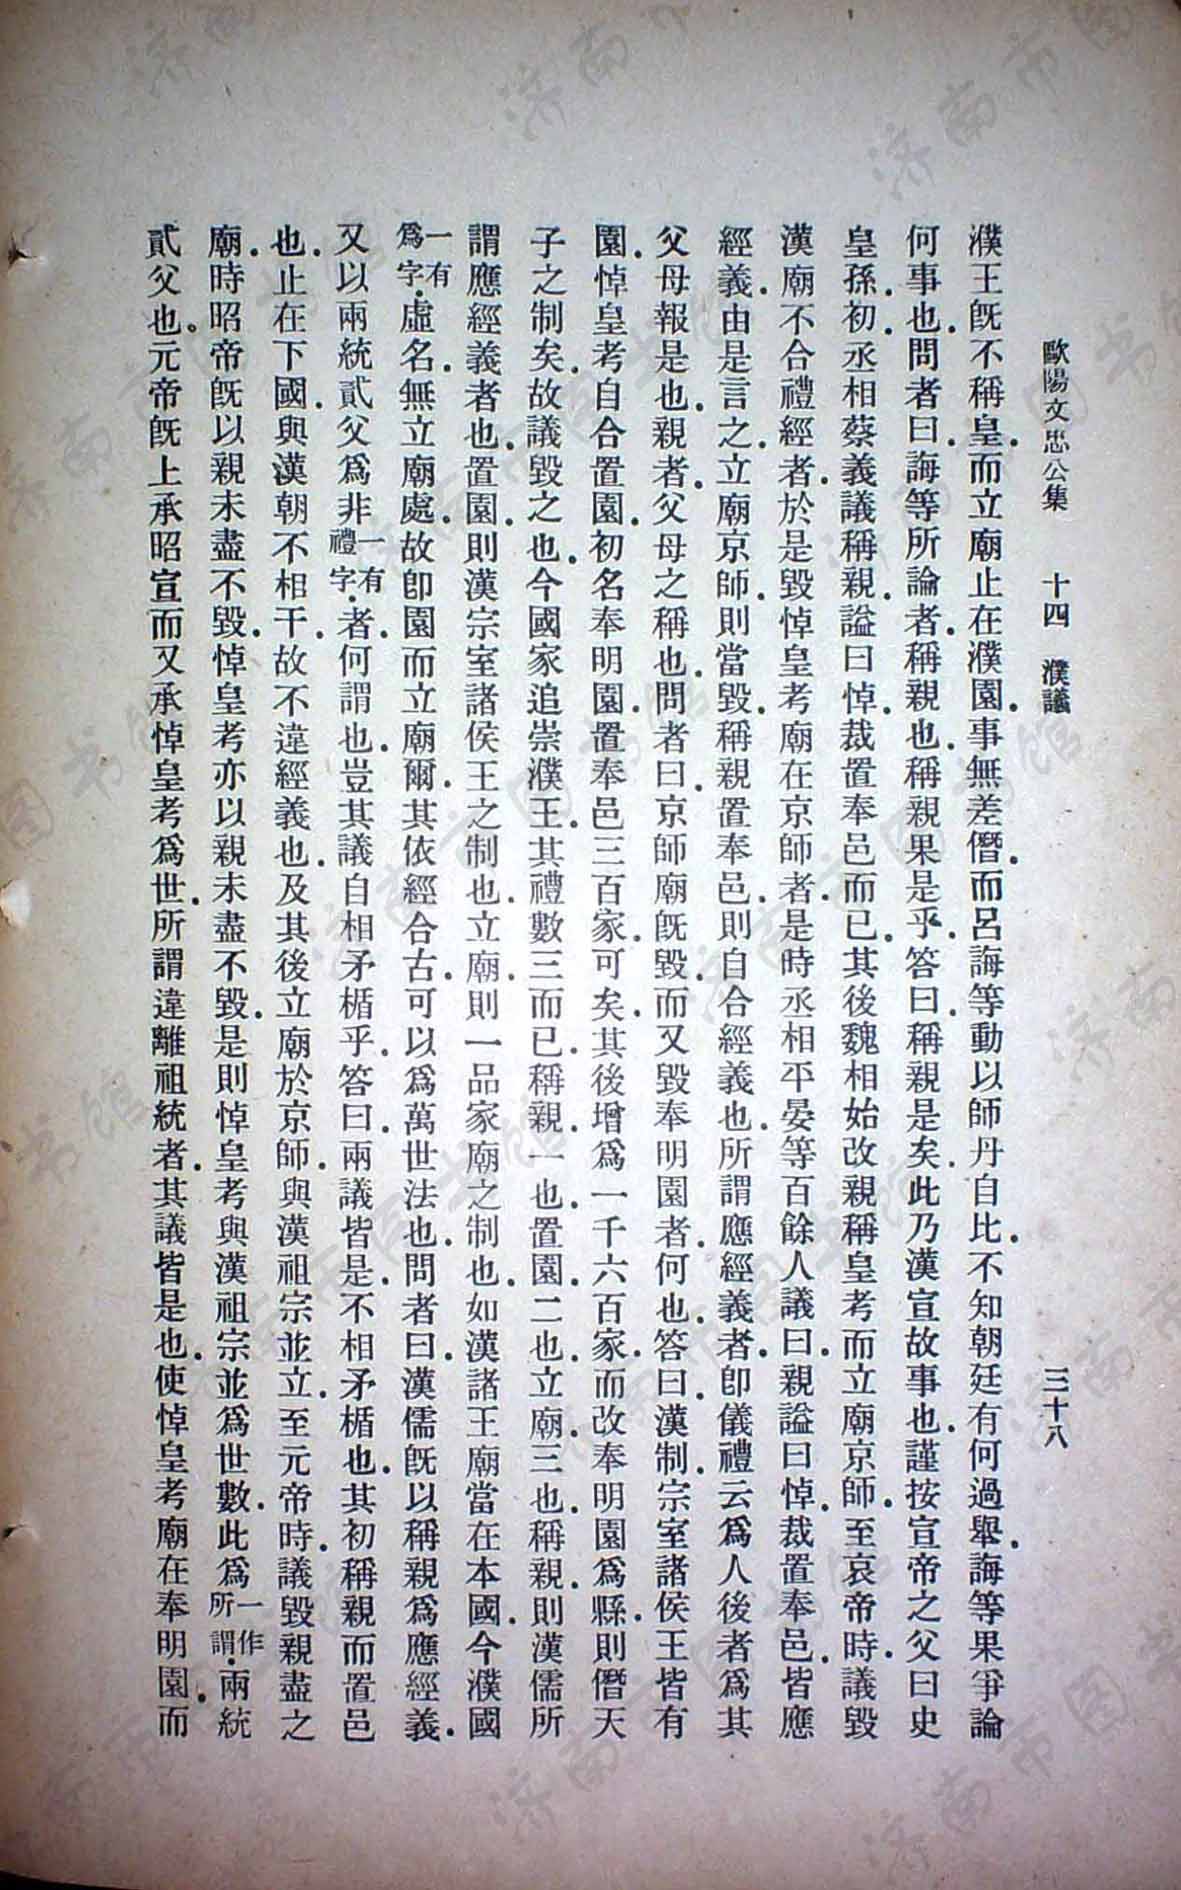 歐陽文忠公集　十四　濮議　三十八
濮王旣不稱皇．而立廟止在濮園．事無差僭．而呂誨等動以師丹自比．不知朝廷有何過舉．誨等果爭論
何事也．問者曰．誨等所論者．稱親也．稱親果是乎．答曰．稱親是矣．此乃漢宣故事也．謹按宣帝之父曰史
皇孫．初．丞相蔡義議稱親．謚曰悼．裁置奉邑而已．其後魏相始改親稱皇考而立廟京師．至哀帝時．議毀
漢廟不合禮經者．於是毀悼皇考廟在京師者．是時丞相平晏等百餘人議曰．親謚曰悼．裁置奉邑．皆應
經義．由是言之．立廟京師．則當毀．稱親置奉邑．則自合經義也．所謂應經義者．卽儀禮云爲人後者爲其
父母報是也．親者．父母之稱也．問者曰．京師廟旣毀．而又毀奉明園者．何也．答曰．漢制．宗室諸侯王皆有
園．悼皇考自合置園．初名奉明園．置奉邑三百家．可矣．其後增爲一千六百家．而改奉明園爲縣．則僭天
子之制矣．故議毀之也．今國家追崇濮王．其禮數三而已．稱親．一也．置園．二也．立廟．三也．稱親．則漢儒所
謂應經義者也．置園．則漢宗室諸侯王之制也．立廟．則一品家廟之制也．如漢諸王廟當在本國．今濮國
一有爲字．虛名．無立廟處．故卽園而立廟爾．其依經合古．可以爲萬世法也．問者曰．漢儒旣以稱親爲應經義．
又以兩統貳父爲非一有禮字．者．何謂也．豈其議自相矛楯乎．答曰．兩議皆是．不相矛楯也．其初稱親而置邑
也．止在下國．與漢朝不相干．故不違經義也．及其後立廟於京師．與漢祖宗並立．至元帝時．議毀親盡之
廟．時昭帝旣以親未盡不毀．悼皇考亦以親未盡不毀．是則悼皇考與漢祖宗並爲世數．此爲一作所謂．兩統
貳父也。元帝旣上承昭宣而又承悼皇考爲世．所謂違離祖統者．其議皆是也．使悼皇考廟在奉明園．而